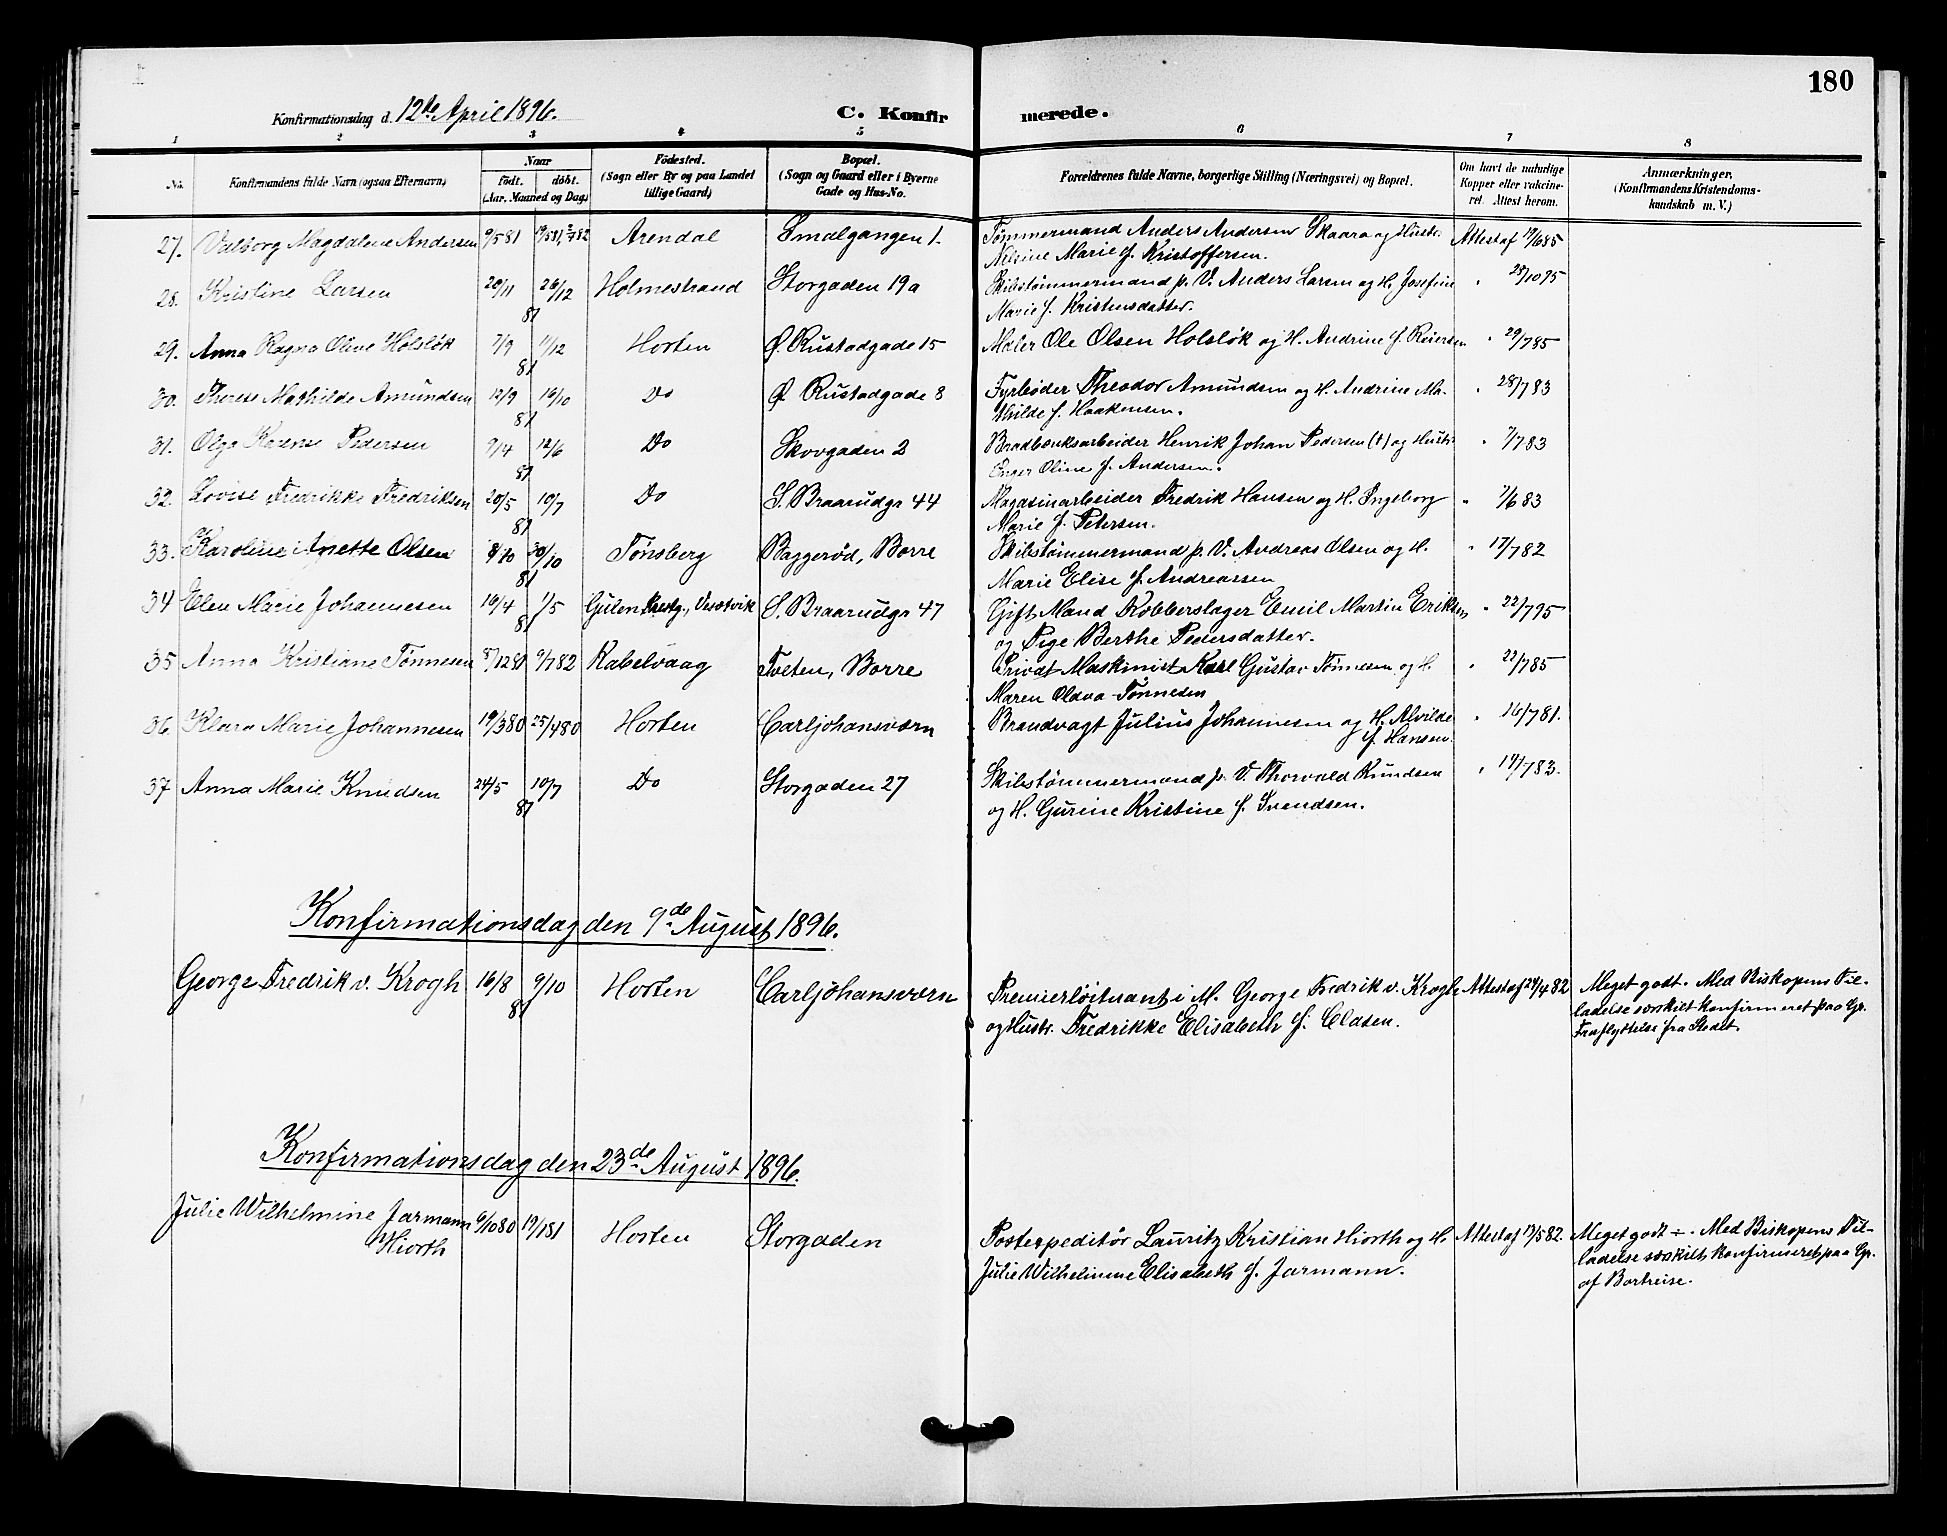 180
Konfirmationsdag d. 12te April 1896.
C. Konfirmerede.
1 2 3 4 5 6 7 8
No. Konfirmandens fulde Navn (ogsaa Efternavn) Naar født. døbt. (Aar, Maaned og Dag) Fødested. (Sogn eller By og paa Landet tillige Gaard) Bopæl. (Sogn og Gaard eller i Byerne Gade og Hus-No. Forældrenes fulde Navne, borgerlige Stilling (Næringsvei) og Bopæl. Om havt de naturlige Kopper eller vakcineret. Attest herom. Anmærkninger, (Konfirmandens Kristendomskundskab m. V.)
27. Valborg Magdalene Andersen 9/5 81 19/5 81, 2/7 82 Arendal Smalgangen 1. Tømmermand Anders Andersen Skaara og Hustr. Attest af 19/6 85
Nilsine Marie f. Kristoffersen.
28. Kristine Larsen 20/11 26/12 81 Holmestrand Storgaden 19a Skibstømmermand p. V. Anders Larsen og H. Josefine " 28/10 95
Marie f. Kristensdatter.
29. Anna Ragna Oline Holsløk 7/9 11/12 81 Horten Ø. Rustadgade 15 Maler Ole Olsen Holsløk og H. Andrine f. Reiersen " 29/7 85
30. Therese Mathilde Amundsen 12/9 16/10 81 Do Ø. Rustadgade 8 Fyrbøder Theodor Amundsen og H. Andrine Ma- " 28/7 83
thilde f. Haakensen.
31. Olga Karense Pedersen 9/4 12/6 81 Do Skovgaden 2 Bradbænksarbeider Henrik Johan Pedersen (†) og Hustr. " 7/7 83
Inger Oline f. Andersen.
32. Lovise Fredrikke Fredriksen 20/5 10/7 81 Do S. Braarudgr 44 Magasinarbeider Fredrik Hansen og H. Ingeborg " 7/6 83
Marie f. Petersen.
33. Karoline Anette Olsen 8/10 30/10 81 Tønsberg Baggerød, Borre Skibstømmermand p. V. Andreas Olsen og H. " 17/7 82
Marie Elise f. Andreassen
34 Elen Marie Johannesen 16/4 1/5 81 Gulen Prestg., S. Braarudgr 47 Gift Mand Kobberslager Emil Martin Eriksen " 22/7 95
og Pige Berthe Pedersdatter.
35 Anna Kristiane Tønnesen 8/12 81 9/7 82 Kabelvaag Tveten, Borre Privat Maskinist Karl Gustav Tønnesen og H. " 22/7 85
Maren Olava Tønnesen
36 Klara Marie Johannesen 19/3 80 25/4 80 Horten Carljohansværn Brandvagt Julius Johannesen og H. Alvilde " 16/7 81.
f. Hansen.
37 Anna Marie Knudsen 24/5 10/7 81 Do Storgaden 27 Skibstømmermand p. V. Thorvald Knudsen " 19/7 83.
og H. Gurine Kristine f. Svendsen.
Konfirmationsdag den 9de August 1896.
George Fredrik v. Krogh 16/8 9/10 81 Horten Carljohansværn Premierløitnant i M. George Fredrik v. Krogh Attest af 24/4 82 Meget godt. Med Biskopens Til-
og Hustr. Fredrikke Elisabeth f. Clasen. ladelse særskilt konfirmeret paa Gr.
Fraflyttelse fra Stedet.
Konfirmationsdag den 23de August 1896.
Julie Wilhelmine Jarmann 6/10 80 19/1 81 Horten Storgaden Postexpeditør Lauritz Kristian Hiorth og H. Attest af 13/5 82. Meget godt ÷. Med Biskopens Til-
Hiorth Julie Wilhelmine Elisabeth f. Jarmann. ladelse særskilt konfirmeret paa Gr.
af Bortreise.